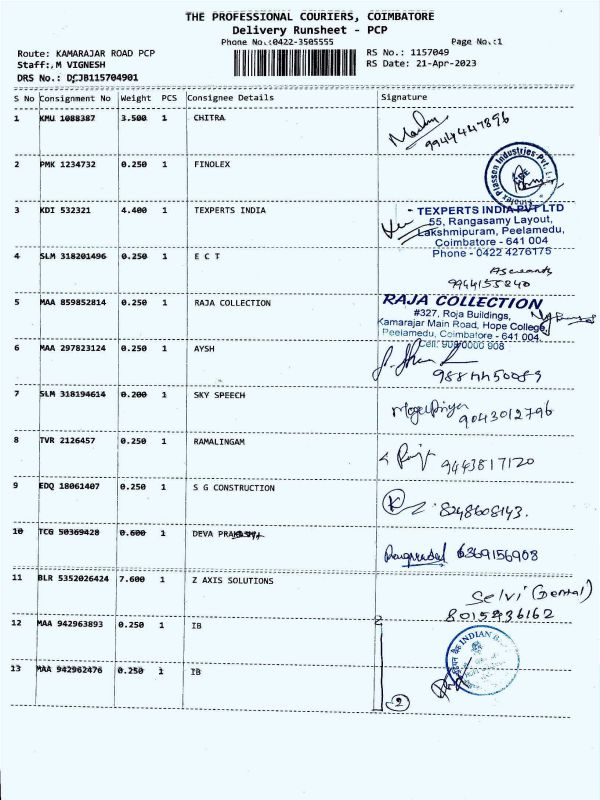 THE PROFESSIONAL COURIERS, COIMBATORE
Delivery Runsheet - PCP
Phone No.:0422-3505555
Page No.:1
Route: KAMARAJAR ROAD PCP
RS No.: 1157049
Staff:,M VIGNESH
RS Date: 21-Apr-2023
DRS No.: DCJB115704901
S No Consignment No Weight PCS Consignee Details Signature
1 KMU 1088387 3.500 1 CHITRA
9944447896
2 PMK 1234732 0.250 1 FINOLEX
3 KDI 532321 4.400 1 TEXPERTS INDIA
TEXPERTS INDIA PVT LTD
55, Rangasamy Layout,
Lakshmipuram, Peelamedu,
Coimbatore - 641 004
Phone - 0422 4276175
4 SLM 318201496 0.250 1 E C T
9944155840
5 MAA 859852814 0.250 1 RAJA COLLECTION
RAJA COLLECTION
#327, Roja Buildings,
Kamarajar Main Road, Hope College,
Peelamedu, Coimbatore - 641 004.
6 MAA 297823124 0.250 1 AYSH
9884450089
7 SLM 318194614 0.200 1 SKY SPEECH
9043012796
8 TVR 2126457 0.250 1 RAMALINGAM
9443817120
9 EDQ 18061407 0.250 1 S G CONSTRUCTION
8248608143.
10 TCG 50369428 0.600 1 DEVA
6369156908
11 BLR 5352026424 7.600 1 Z AXIS SOLUTIONS
Selvi (Dental)
8015936162
12 MAA 942963893 0.250 1 IB
INDIAN
13 MAA 942962476 0.250 1 IB
2